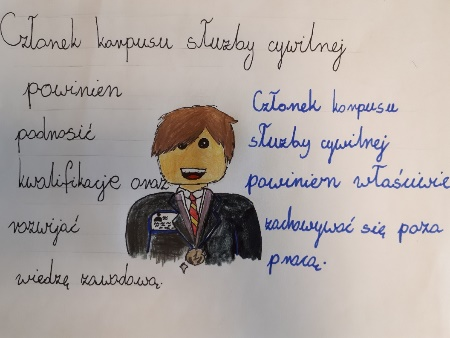 Członek korpusu służby cywilnej
powinien
podnosić
kwalifikacje oraz
rozwijać
wiedzę zawodową.
Członek korpusu
służby cywilnej
powinien właściwie
zachowywać się poza
pracą.